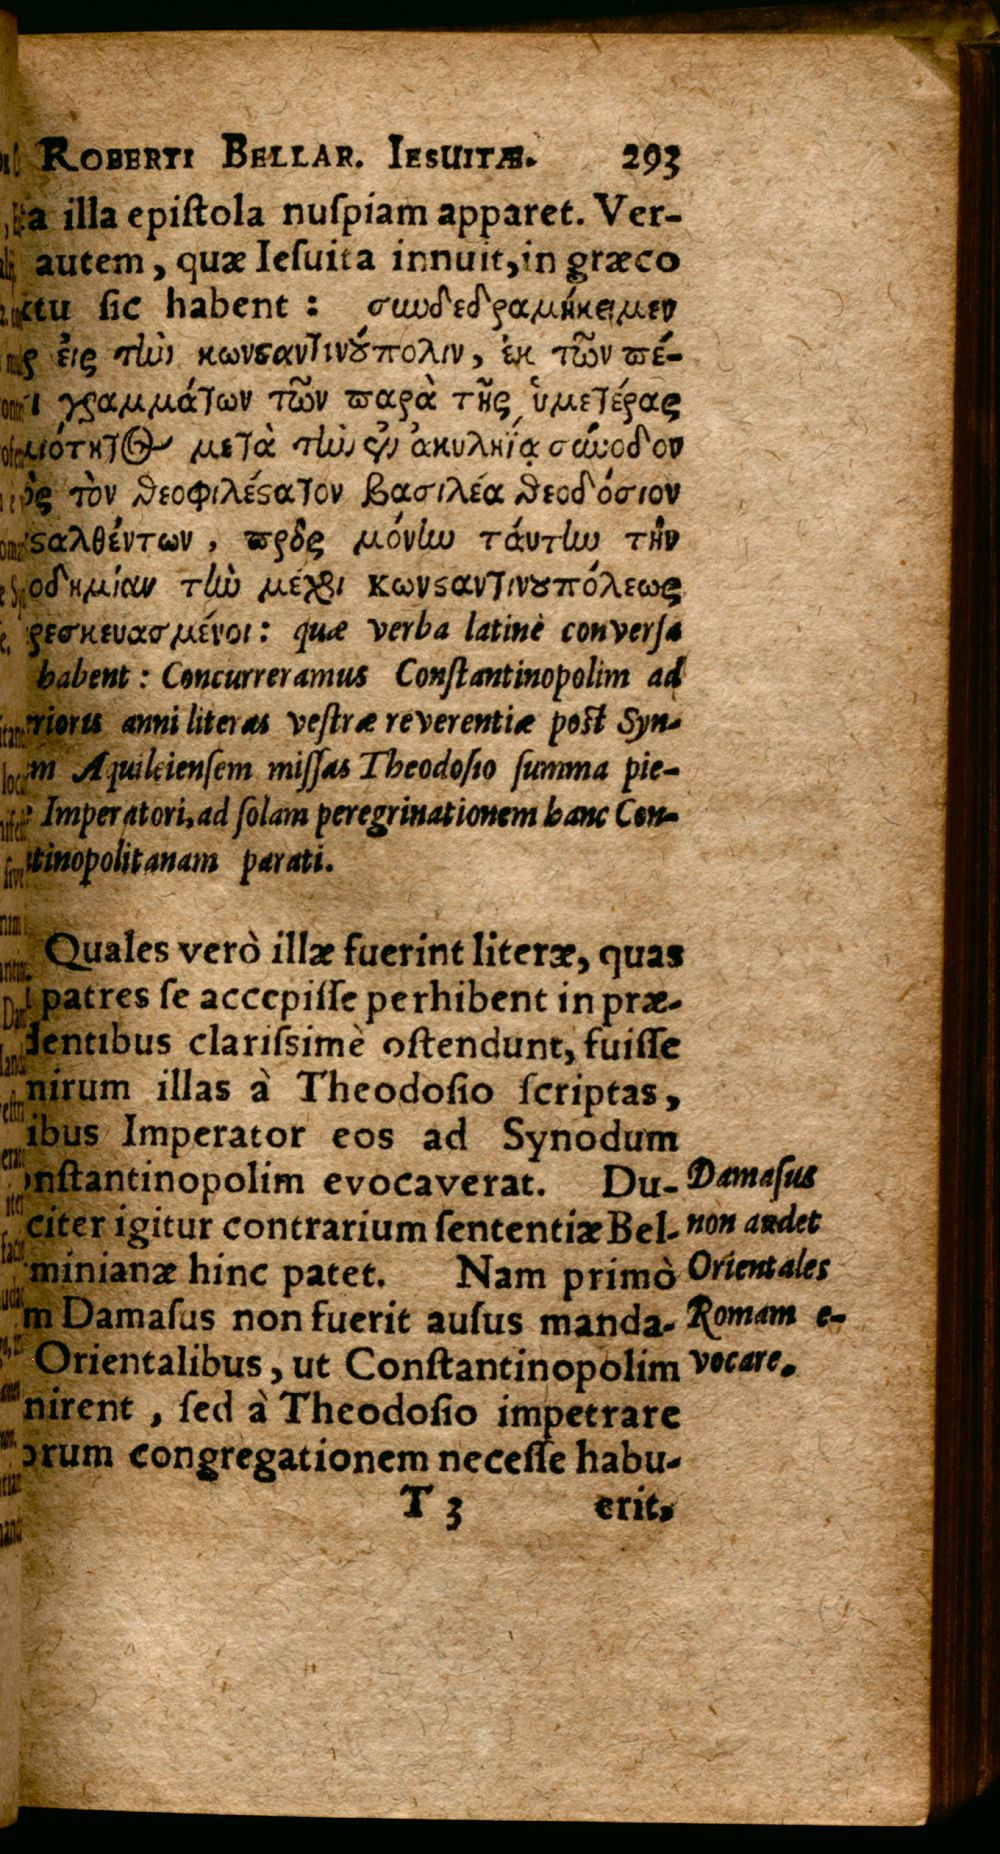 ROBERTI BELLAR. IESUITÆ. 293
a illa epiſtola nuſpiam apparet. Ver-
autem, quæ Ieſuita innuit, in græco
ctu ſic habent: συνδεδραμήκειμεν
ς εἰς τὴν κωνϛαντινούπολιν, ἐκ τῶν πέ-
ι γραμμάτων τῶν παρὰ τῆς ὑμετέρας
μιότητος μετὰ τὴν ἐν ἀκυληΐᾳ σύνοδον
ὸς τὸν θεοφιλέϛατον βασιλέα θεοδόσιον
ϛαλθέντων, πρὸς μόνην ταύτην τὴν
οδημίαν τὴν μέχρι κωνϛαντινουπόλεως
ρεσκευασμένοι: quæ verba latinè converſa
habent: Concurreramus Conſtantinopolim ad
rioris anni literas veſtræ reverentiæ poſt Syn-
m Aquileienſem miſſas Theodoſio ſumma pie-
Imperatori, ad ſolam peregrinationem hanc Con-
tinopolitanam parati.
Quales verò illæ fuerint literæ, quas
patres ſe accepiſſe perhibent in præ-
dentibus clariſsimè oſtendunt, fuiſſe
nirum illas à Theodoſio ſcriptas,
ibus Imperator eos ad Synodum
onſtantinopolim evocaverat. Du-
citer igitur contrarium ſententiæ Bel-
minianæ hinc patet. Nam primò
m Damaſus non fuerit auſus manda-
Orientalibus, ut Conſtantinopolim
nirent, ſed à Theodoſio impetrare
orum congregationem neceſſe habu-
Damaſus
non audet
Orientales
Romam e-
vocare.
T 3 erit,